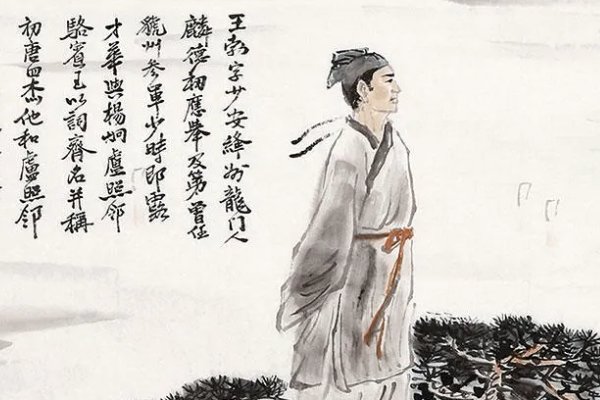 王勃字少安絳州龍门人
麟德初應举及第曾任
虢州参军少時即露
才華與楊炯盧照邻
駱賓王以詞齊名并稱
初唐四杰他和盧照邻